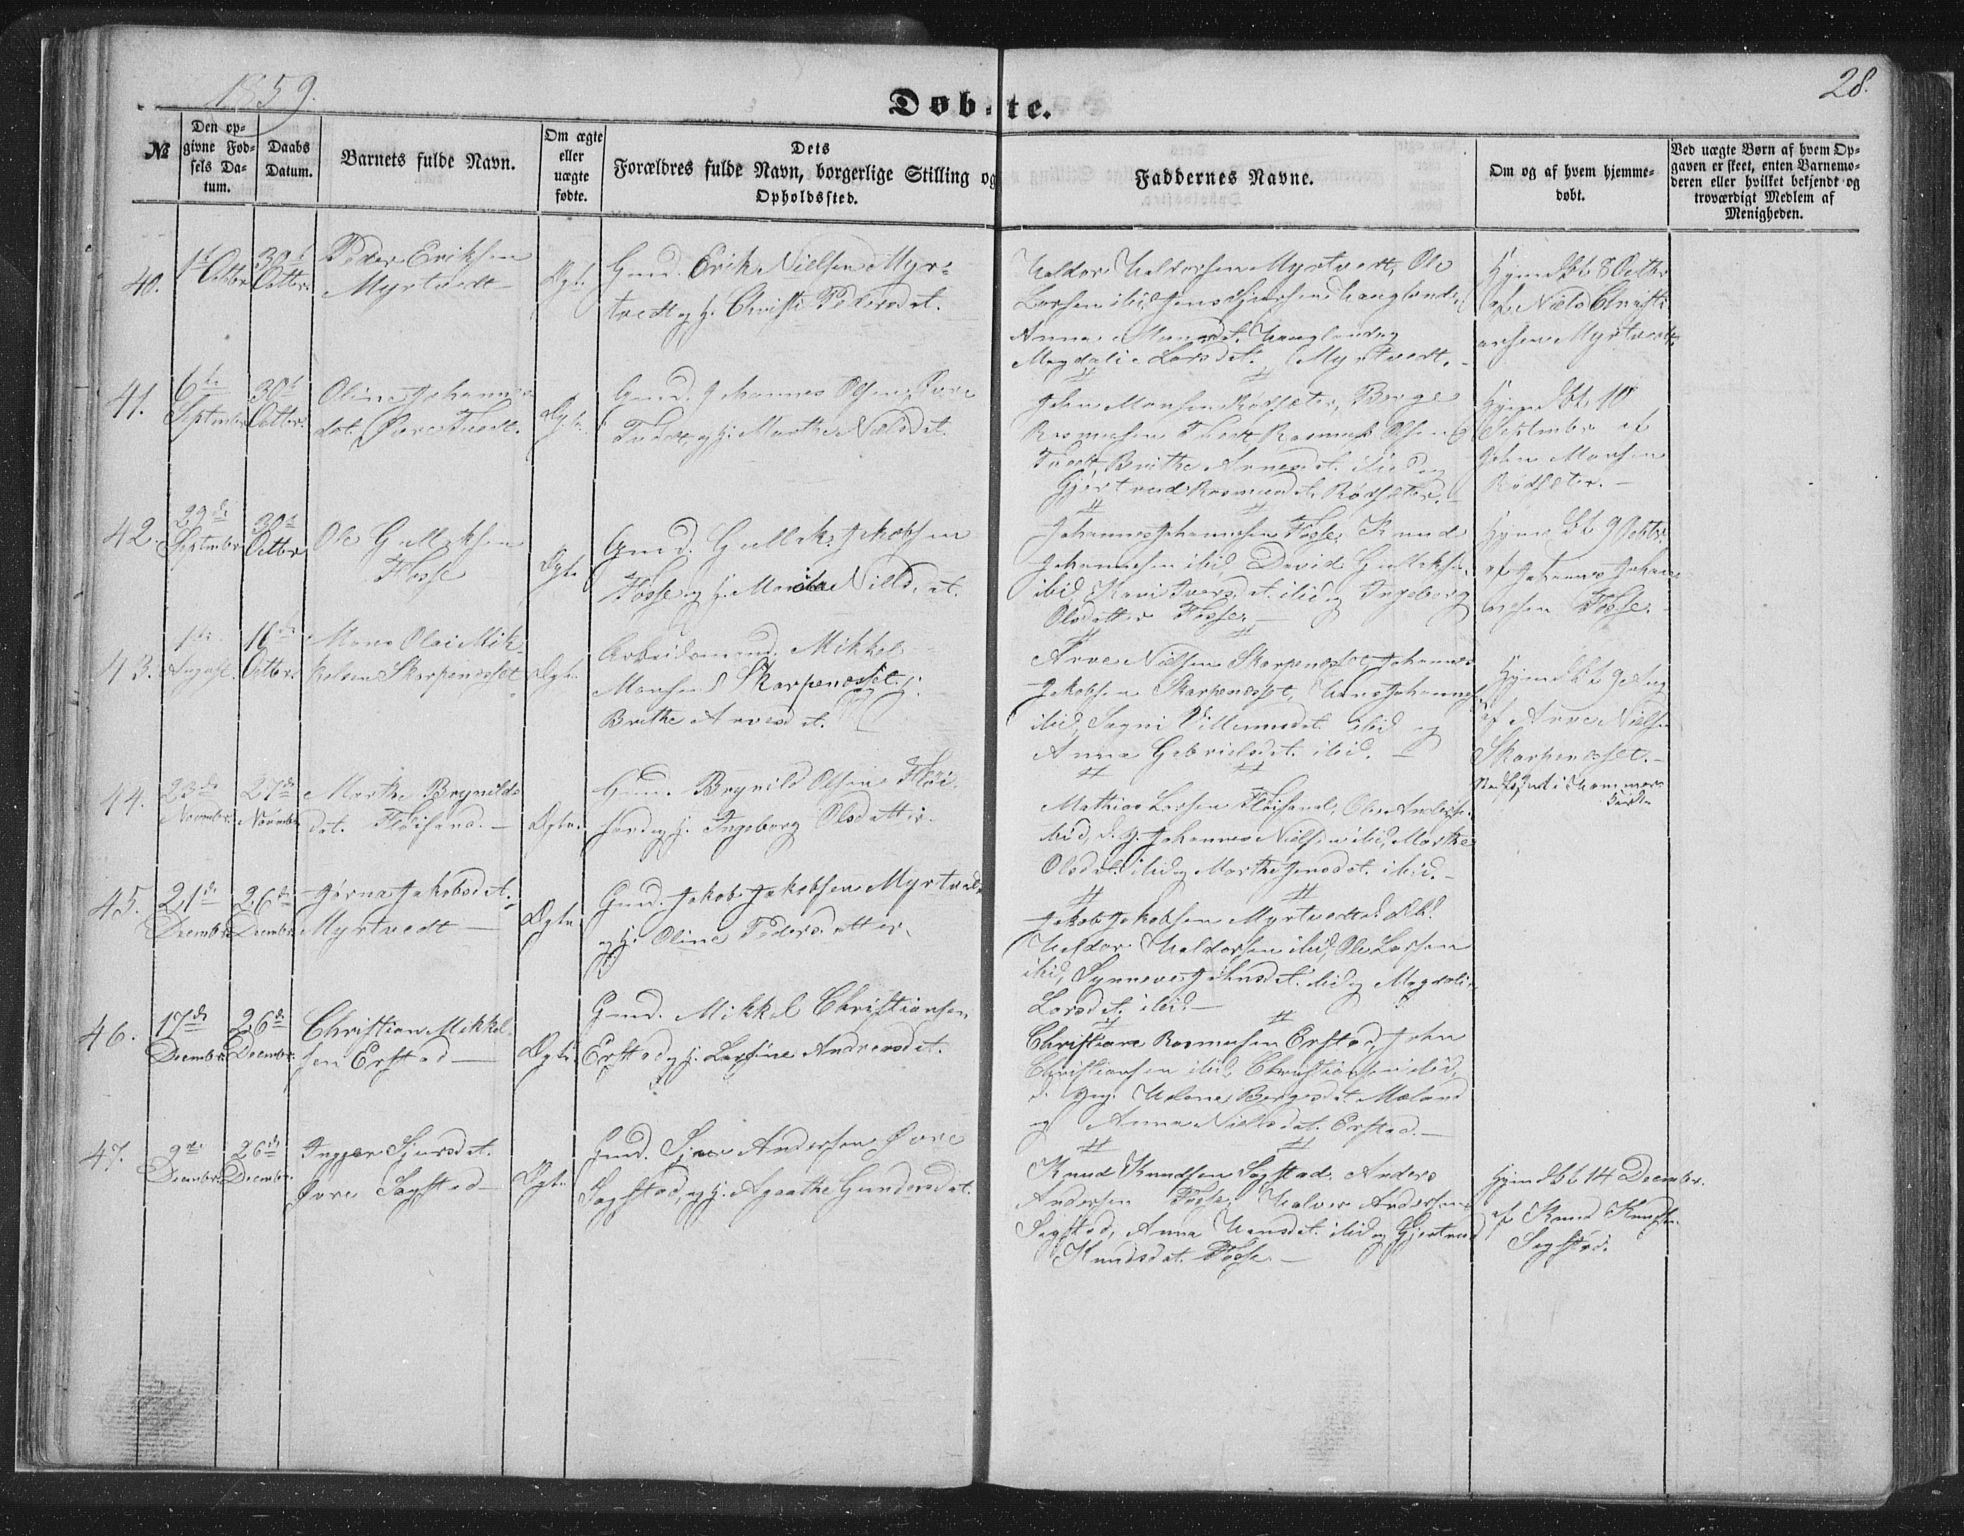 1859.
28.
Døbte.
№
Den opgivne Fødsels Datum.
Daabs Datum.
Barnets fulde Navn.
Om ægte eller uægte fødte.
Dets Forældres fulde Navn, borgerlige Stilling og Opholdssted.
Faddernes Navne.
Om og af hvem hjemmedøbt.
Ved uægte Børn af hvem Opgaven er skeet, enten Barnemoderen eller hvilket bekjendt og troværdigt Medlem af Menigheden.
40.
1ste Octbr
30te Octbr.
Peder Eriksen
Myrtvedt
Ægte
Gmd. Erik Nielsen Myr-
tvedt og h. Christi Pedersdat.
Haldor Haldorsen Myrtvedt, Ole
Larsen ibid,
Anna
Magdali Larsdat. Myrtvedt.
Hjmdbt 8 Octbr
af Niels Christi
ansen Myrtvedt.
41.
6te
September
30te
Octbr.
Oline Johannes
dat. Øvre Tvedt.
Ægte
Gmd. Johannes Olsen Øvre
Tvedt og h. Marthe Nielsdat.
John Monsen Rødsæter, Berge
Rasmusen Tvedt Rasmus Olsen
Tvedt, Brithe Arnesdat. ibid og
Gjertrud Rasmusdt. Rødsæter.
Hjemdbt 10
September af
John Monsen
Rødsæter.
42.
September
30te
Octbr
Ole Gulleksen
Fosse
Ægte
Gmd. Gullik Jakobsen
Fosse og h. Nilsdat.
Johannes Johannesen Fosse, Knud
Johannesen ibid, David Gulleksen
ibid, Kari Iversdat. ibid og Ingeborg
Olsdatter Fosse.
Hjmdbt 9 Octbr
af Johannes Johan
nesen Fosse.
43.
1ste
August.
16de
Octbr.
Mons Olai Mik-
kelsen Skarpenesset
Ægte
Arbeidsmand. Mikkel
Monsen Skarpenesset og h.
Brithe Arnesdat.
Arne Nielsen Skarpenesset, Johannes
Jakobsen Skarpenesset, Hans Johannes.
ibid, Sagni Villumsdat. ibid og
Anna Gabrielsdat. ibid.
Hjmdbt 9de Aug
af Arne Nielsen
Skarpenesset.
44.
23de
November
27de
November
Marthe Brynilds
dat. Fløisand.
Ægte
Huusm. Brynild Olsen Fløi-
sand og h. Ingeborg Olsdatter.
Mathias Larsen Fløisand, Ole Anders.
ibid, d. y. Johannes Nielsen ibid, Marthe
Olsdat. ibid og Marthe Jensdat. ibid.
45.
21de
Decembr.
26de
Decembr.
Jørna Jakobsdat.
Myrtvedt
Ægte
Gmd. Jakob Jakobsen Myrtvedt
og h. Oline Pedersdatter.
Jakob Jakobsen Myrtvedt d. Æld.
Haldor Haldorsen ibid, Ole Larsen
ibid, Synneve Johnsdat. ibid og Magdali
Larsdat. ibid
46.
17de
Decembr.
26de
Decembr.
Christian Mikkel
sen Erstad
Ægte
Gmd. Mikkel Christiansen
Erstad og h. Larsine Andersdat.
Christian Rasmusen Erstad, John
Christiansen ibid, Christiansen ibid,
d. yng. Helene Bergesdt. Mæland
og Anna Nielsdat. Erstad.
47.
9de
Decembr.
26de
Decembr.
Inger Sjursdat.
Øvre Sagstad
Ægte
Gmd. Sjur Andersen Øvre
Sagstad, og h. Agaathe Gundersdat.
Knud Knudsen Sagstad. Anders
Andersen Fosse, Halvor Andersen
Sagstad, Anna Hansdt. ibid og Gjertrud
Knudsdat. Fosse.
Hjemdbt 14 Decembr.
af Knud Knudsen
Sagstad.